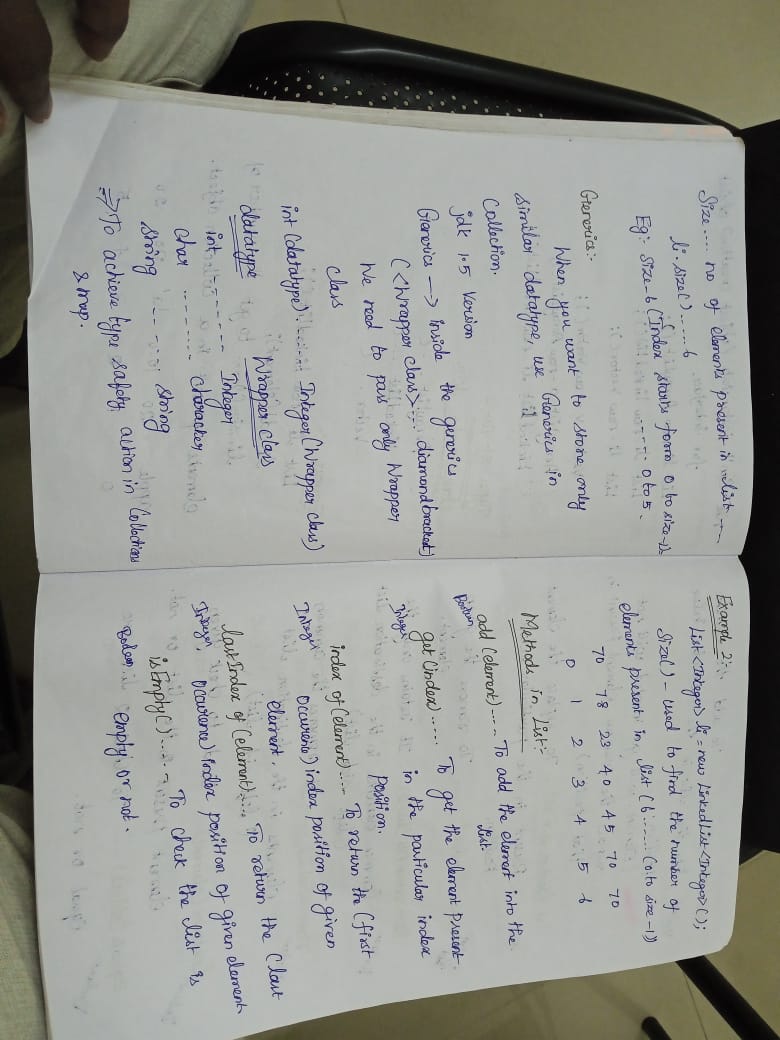 Size.... no of elements present in list
li.size()......6
Eg:- Size-6 (Index starts form 0 to size-1)
...... 0 to 5.
Generics:-
When you want to store only
similar datatype, use Generics in
Collection.
jdk 1.5 Version
Generics —> inside the generics
(<Wrapper class>.... diamond bracket)
We need to pass only Wrapper
class
int (datatype)....... Integer (Wrapper class)
datatype Wrapper class
int ------- Integer
char ------- Character,
String ------ String
=> To achieve type safety, action in Collections
& map.
Example 2:-
List<Integer> li = new LinkedList<Integer>();
Size() - used to find the number of
elements present in list (6...... (0.to size-1))
70 78 23 40 45 70 70
0 1 2 3 4 5 6
Methods in List:-
add (element)---- To add the element into the
Boolean list.
get (index)..... To get the element present
Integer in the particular index
Position.
index of (element).... To return the (first
Integer Occurence) index position of given
element.
last Index of (element)..... To return the (last
Integer, Occurence) index position of given element
isEmpty()...... To check the list is
Boolean empty, or not.